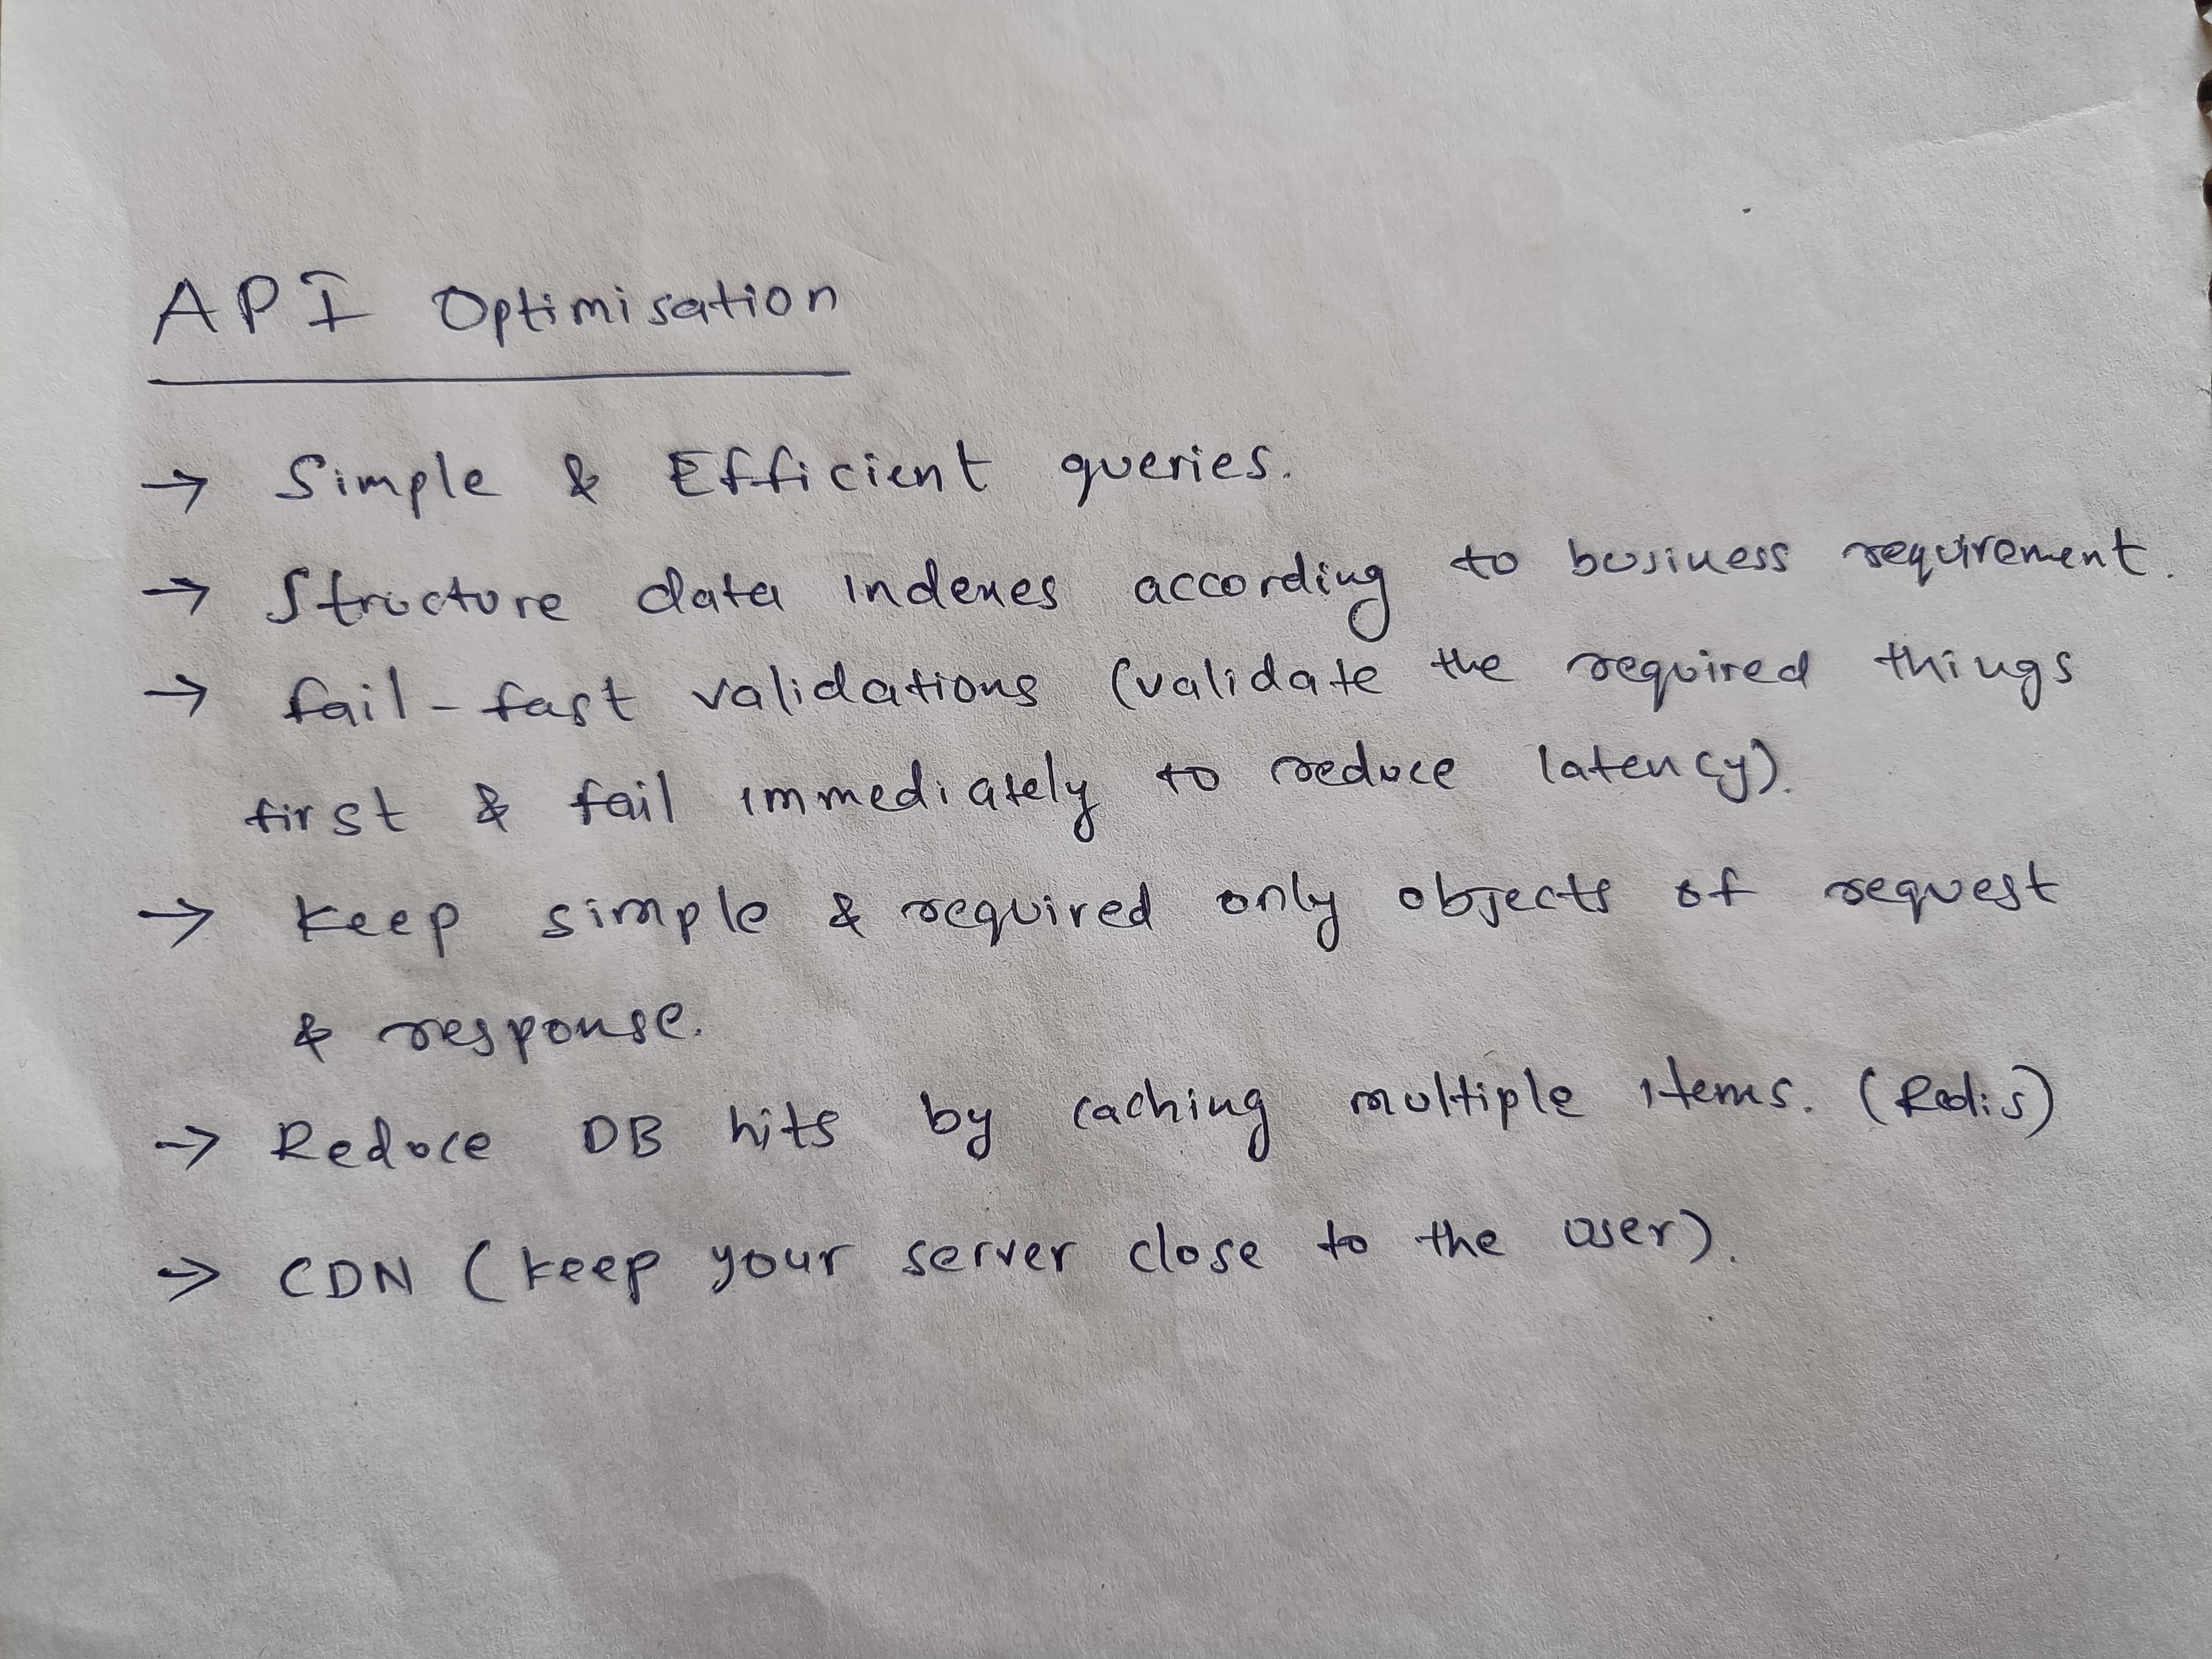 API Optimisation
→ Simple & Efficient queries.
→ Structure data indexes according to business requirement.
→ fail-fast validations (validate the required things
first & fail immediately to reduce latency).
→ keep simple & required only objects of request
& response.
→ Reduce DB hits by caching multiple items. (Redis)
→ CDN (keep your server close to the user).